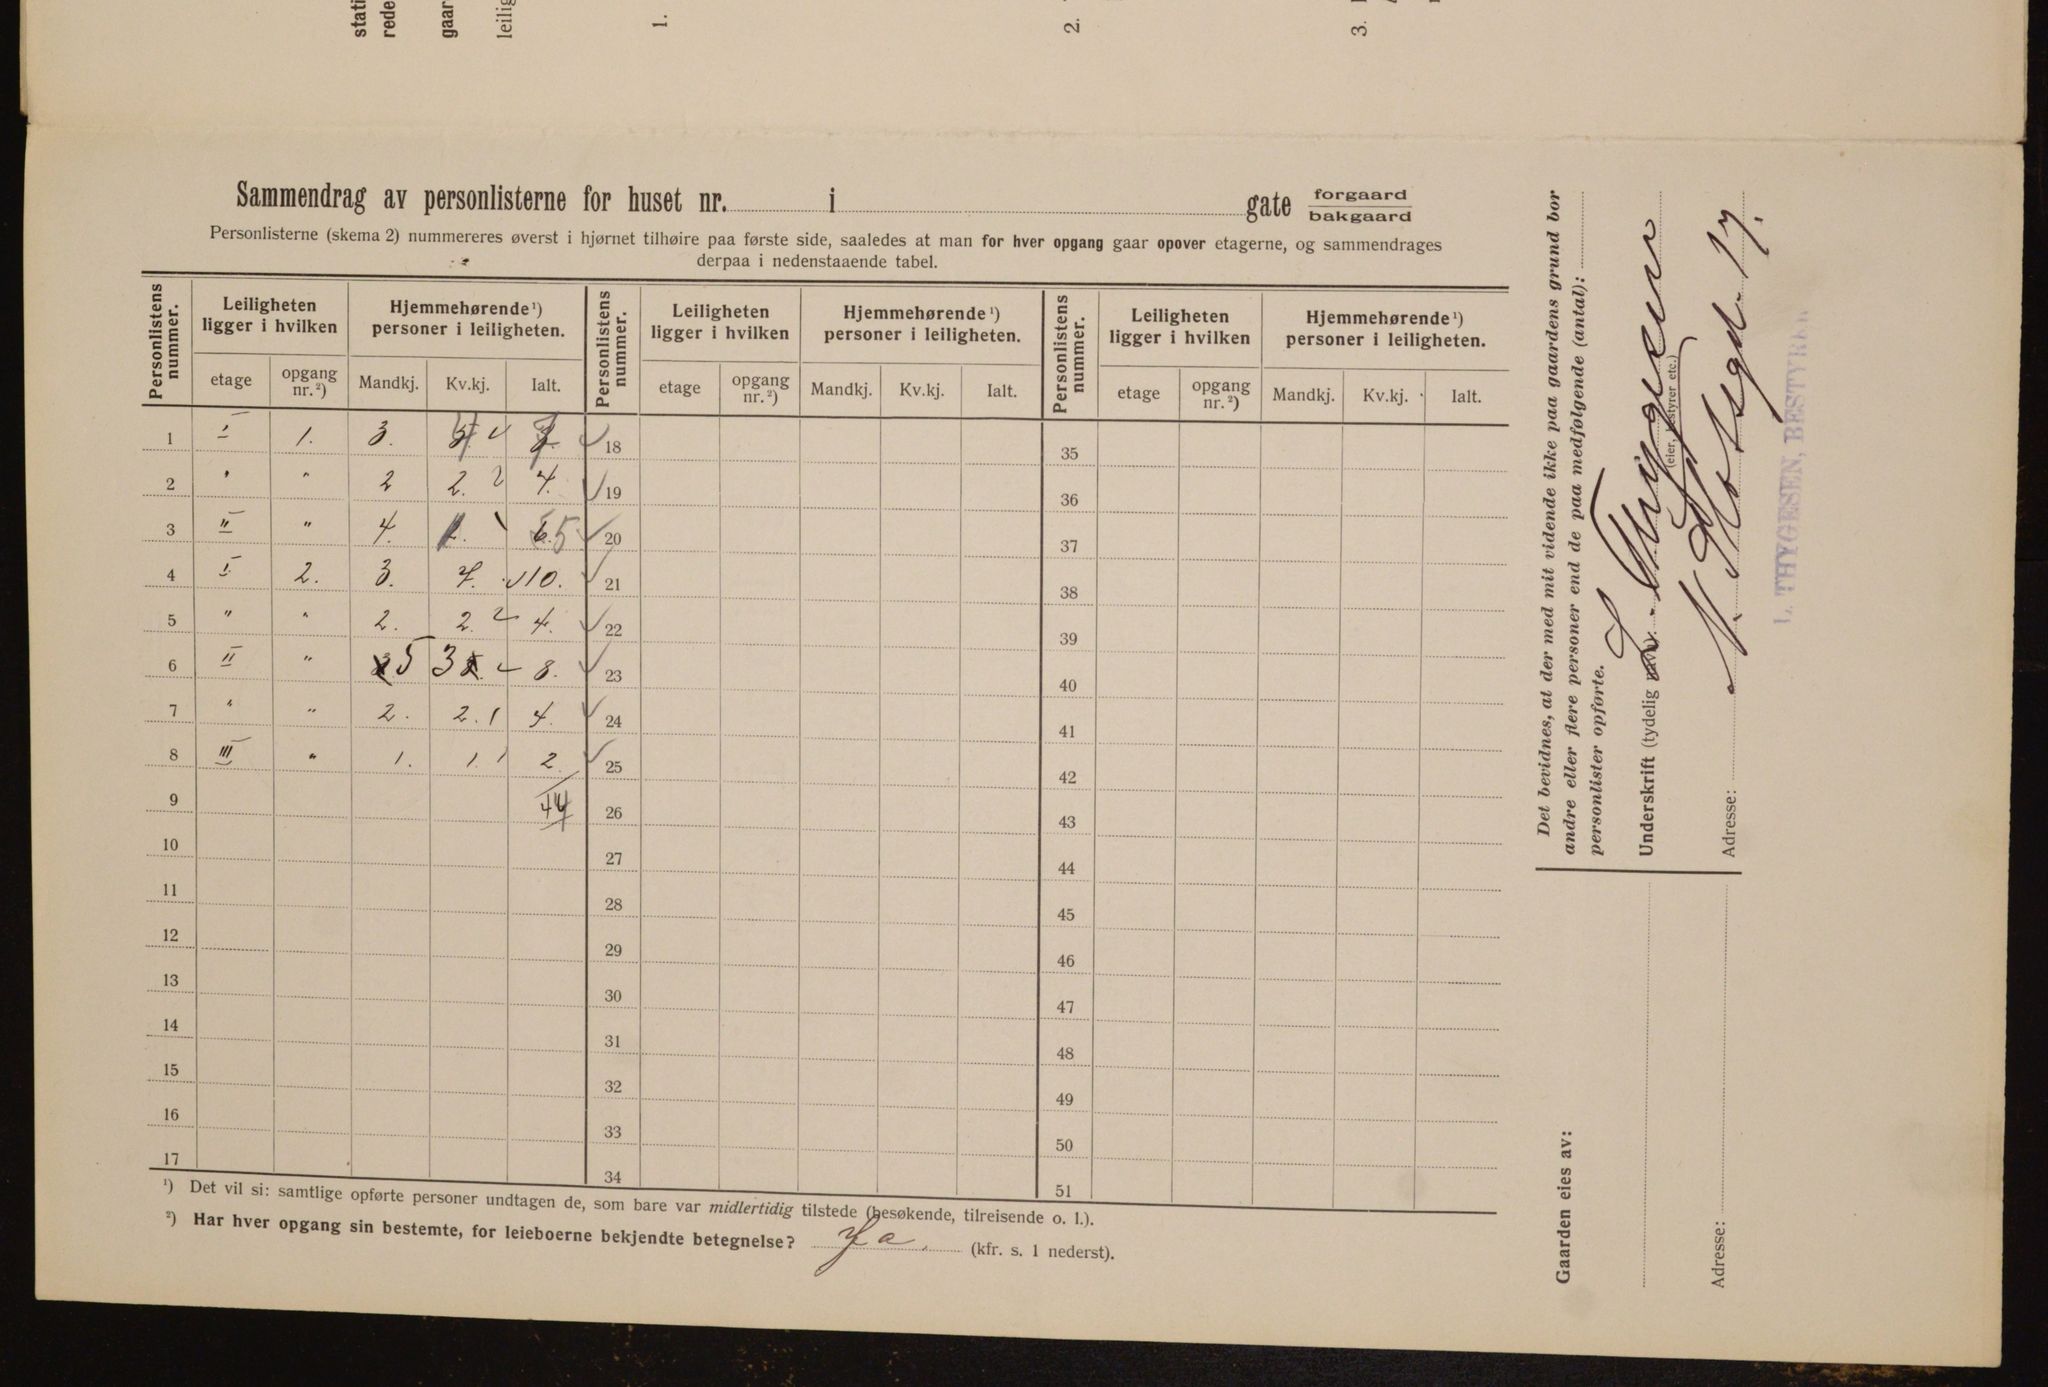 stati
rede
gaar
leilig
1.
2.
3.
Sammendrag av personlisterne for huset nr. i gate forgaard
bakgaard
Personlisterne (skema 2) nummereres øverst i hjørnet tilhøire paa første side, saaledes at man for hver opgang gaar opover etagerne, og sammendrages
derpaa i nedenstaaende tabel.
Personlistens nummer. Leiligheten ligger i hvilken Hjemmehørende¹) personer i leiligheten. Personlistens nummer. Leiligheten ligger i hvilken Hjemmehørende¹) personer i leiligheten. Personlistens nummer. Leiligheten ligger i hvilken Hjemmehørende¹) personer i leiligheten.
etage opgang nr.²) Mandkj. Kv.kj. Ialt. etage opgang nr.²) Mandkj. Kv.kj. Ialt. etage opgang nr.²) Mandkj. Kv.kj. Ialt.
1 I 1. 3. 4 7 18 35
2 " " 2 2. 4. 19 36
3 II " 4. 1. 5 20 37
4 I 2. 3. 7. 10. 21 38
5 " " 2. 2. 4. 22 39
6 II " 5 3 8. 23 40
7 " " 2. 2. 4. 24 41
8 III " 1. 1. 2. 25 42
9 44 26 43
10 27 44
11 28 45
12 29 46
13 30 47
14 31 48
15 32 49
16 33 50
17 34 51
¹) Det vil si: samtlige opførte personer undtagen de, som bare var midlertidig tilstede (besøkende, tilreisende o. l.).
²) Har hver opgang sin bestemte, for leieboerne bekjendte betegnelse? Ja. (kfr. s. 1 nederst).
Det bevidnes, at der med mit vidende ikke paa gaardens grund bor
andre eller flere personer end de paa medfølgende (antal):
personlister opførte.
Underskrift (tydelig navn): L. Thygesen
(eier, bestyrer etc.)
Adresse: 17.
L. THYGESEN, BESTYRER
Gaarden eies av:
Adresse: